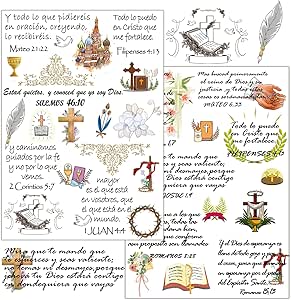 Y todo lo que pidiereis
en oración, creyendo,
lo recibiréis.
Mateo 21:22
Todo lo puedo
en Cristo que
me fortalece.
Filipenses 4:13
Estad quietos, y conoced que yo soy Dios.
SALMOS 46:10
Y caminamos
guiados por la fe
y no por lo que
vemos.
2 Corintios 5:7
mayor
es el que está
en vosotros,
que el que está
en el mundo.
1 JUAN 4:4
Mas buscad primeramente
el reino de Dios y su
justicia, y todas estas
cosas os serán añadidas.
MATEO 6:33
Todo lo puedo
en Cristo que
me fortalece.
FILIPENSES 4:13
que te mando que
y seas valiente;
ni desmayes, porque
Dios estará contigo
quiera que vayas
a los que
todas las
bien,
conforme
propósito son llamados
ROMANOS
Y el Dios de esperanza os
llene de todo gozo y paz
en el creer, para que
abundéis en esperanza
por el poder
del Espíritu Santo.
Romanos 15:13
Mira que te mando que
te esfuerces y seas valiente;
no temas ni desmayes, porque
Jehová tu Dios estará contigo
en dondequiera que vayas